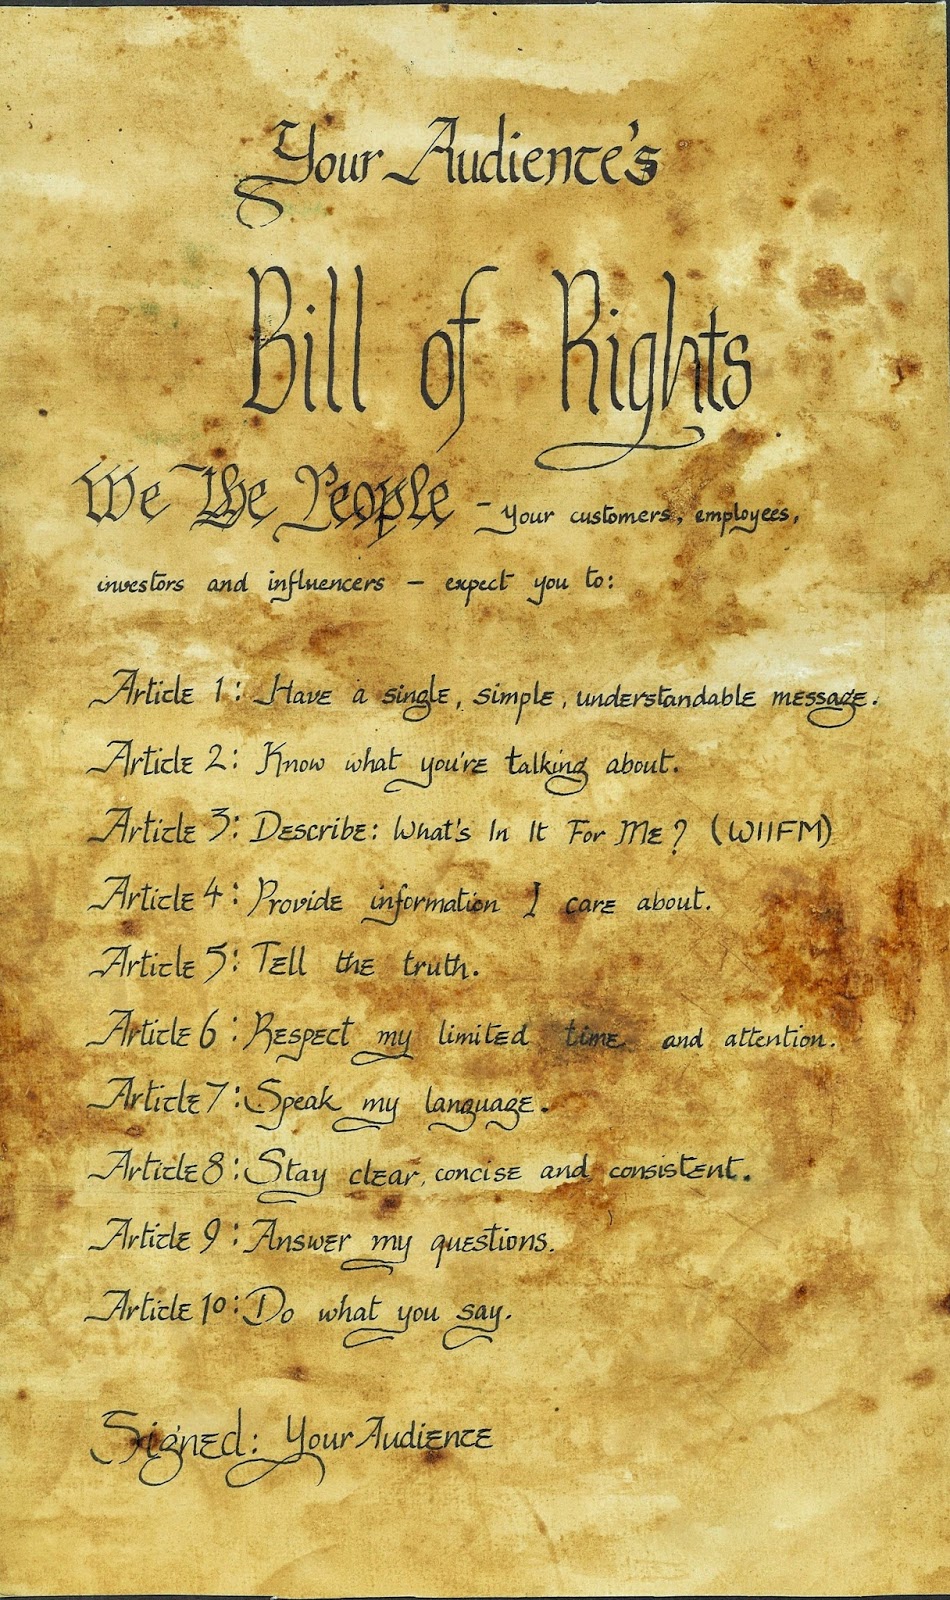 Your Audience's
Bill of Rights
We The People - your customers, employees,
investors and influencers - expect you to:
Article 1: Have a single, simple, understandable message.
Article 2: Know what you're talking about.
Article 3: Describe: What's In It For Me? (WIIFM)
Article 4: Provide information I care about.
Article 5: Tell the truth.
Article 6: Respect my limited time and attention.
Article 7: Speak my language.
Article 8: Stay clear, concise and consistent.
Article 9: Answer my questions.
Article 10: Do what you say.
Signed: Your Audience